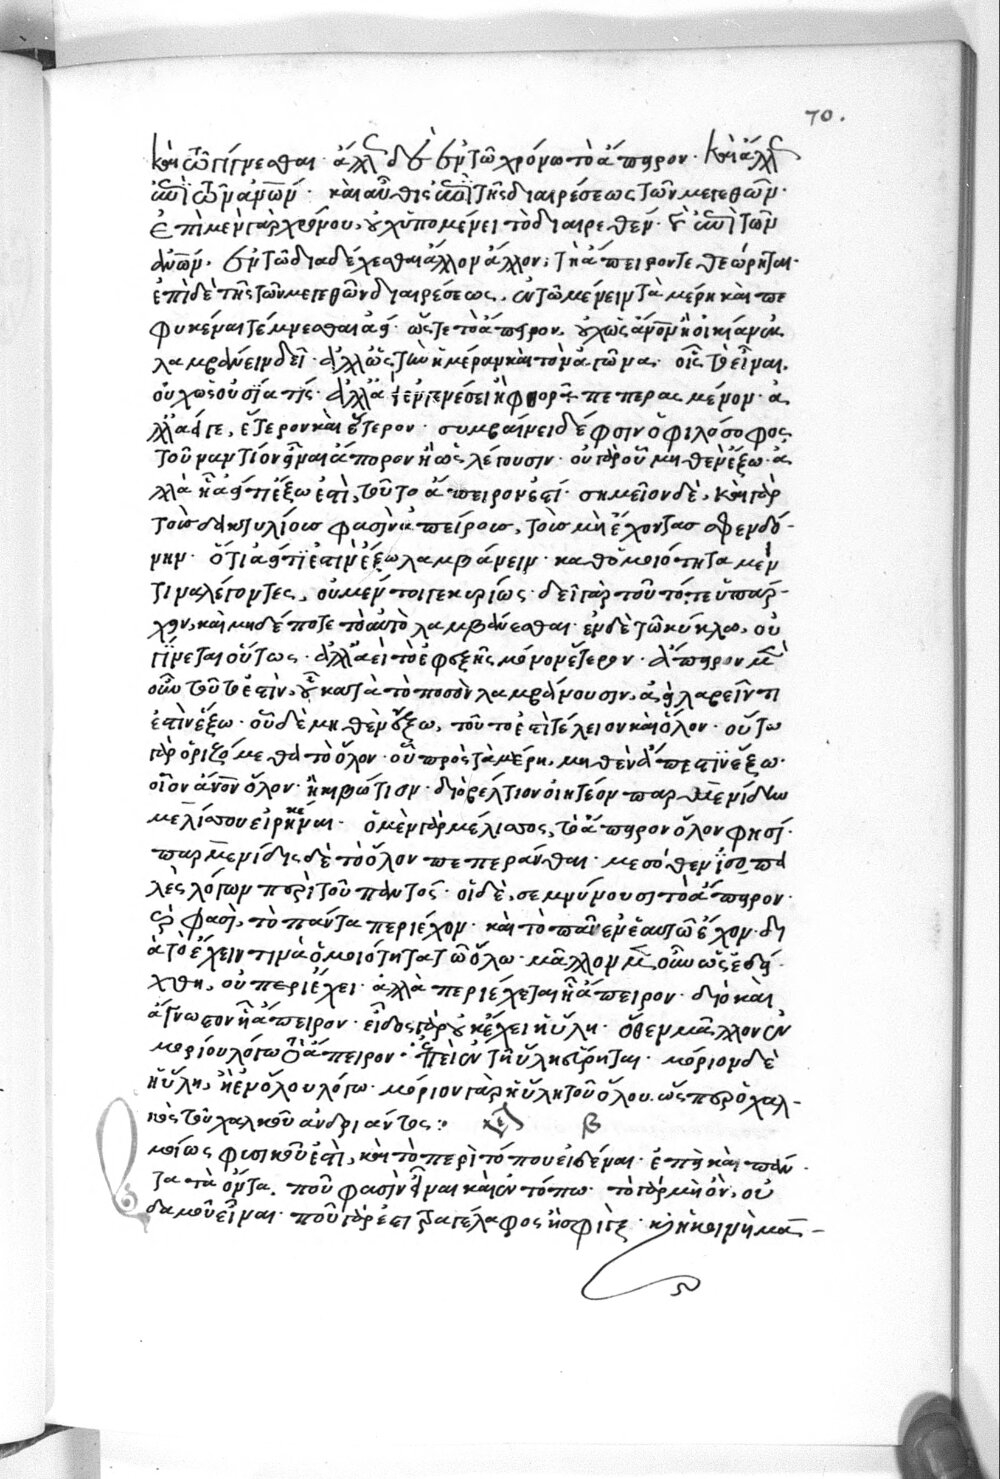 70.
καὶ τῶ γίγνεσθαι· ἄλλως δὲ ἐν τῶ χρόνω τὸ ἄπειρον· καὶ ἄλλως
ἐπὶ τῶν ἀνθρώπων· καὶ αὖθις ἐπὶ τῆς διαιρέσεως τῶν μεγεθῶν·
ἐπὶ μὲν γὰρ χρόνου, οὐχ ὑπομένει τὸ διαιρεθέν· καὶ ἐπὶ τῶν
ἀνθρώπων. ἐν τῶ διαδέχεσθαι ἄλλον ἄλλον, τὴν ἄπειρον τε θεώρηται·
ἐπὶ δὲ τῆς τῶν μεγεθῶν διαιρέσεως, ἐν τῶ μένειν τὰ μέρη καὶ πε
φυκέναι τέμνεσθαι ἀεί· ὥστε τὸ ἄπειρον, οὐχ ὡς ἄνθρωπον ἢ οἰκίαν
λαμβάνειν δεῖ· ἀλλ' ὡς τὴν ἡμέραν καὶ τὸν ἀγῶνα· οἷς τὸ εἶναι,
οὐχ ὡς οὐσία τίς· ἀλλ' ἀεὶ ἐν γενέσει ἢ φθορᾶ πεπερασμένον· ἀ
λλ' ἀεί γε, ἕτερον καὶ ἕτερον· συμβαίνει δέ φησιν ὁ φιλόσοφος
τοὐναντίον εἶναι ἄπειρον ἢ ὡς λέγουσιν· οὐ γὰρ οὗ μηθὲν ἔξω· ἀ
λλὰ οὗ ἀεί τι ἔξω ἐστὶ, τοῦτο ἄπειρόν ἐστι· σημεῖον δὲ, καὶ γὰρ
τοὺς δακτυλίους φασὶν ἀπείρους, τοὺς μὴ ἔχοντας σφενδό-
νην· ὅτι ἀεί τι ἐστὶν ἔξω λαμβάνειν· καθ' ὁμοιότητα μέν
τινα λέγοντες, οὐ μέντοι γε κυρίως· δεῖ γὰρ τοῦτό τε ὑπάρ-
χειν, καὶ μηδέποτε τὸ αὐτὸ λαμβάνεσθαι· ἐν δὲ τῶ κύκλω, οὐ
γίνεται οὕτως· ἀλλ' ἀεὶ τὸ ἐφεξῆς μόνον ἕτερον· ἄπειρον μὲν
οὖν τοῦτό ἐστιν, οὗ κατὰ τὸ ποσὸν λαμβάνουσιν, ἀεὶ λαβεῖν τι
ἐστὶν ἔξω· οὗ δὲ μηθὲν ἔξω, τοῦτό ἐστι τέλειον καὶ ὅλον· οὕτω
γὰρ ὁριζόμεθα τὸ ὅλον· οὗ πρὸς τὰ μέρη, μηθὲν ἄπεστιν ἔξω·
οἷον ἄνθρωπον ὅλον· ἢ κιβώτιον· διὸ βέλτιον οἰητέον παρμενίδην
μελίσσου εἰρηκέναι· ὁ μὲν γὰρ μέλισσος, τὸ ἄπειρον ὅλον φησί·
παρμενίδης δὲ τὸ ὅλον πεπεράνθαι· μεσόθεν ἰσοπα
λὲς λόγων περὶ τοῦ παντός· οἱ δὲ, σεμνύνουσι τὸ ἄπειρον·
ὥς φασὶ, τὸ πάντα περιέχον· καὶ τὸ πᾶν ἐν ἑαυτῶ ἔχον· δι
ὰ τὸ ἔχειν τινὰ ὁμοιότητα τῶ ὅλω· μᾶλλον μὲν οὖν ὡς ἐδεί-
χθη, οὐ περιέχει· ἀλλὰ περιέχεται ἧ ἄπειρον· διὸ καὶ
ἄγνωστον ἧ ἄπειρον· εἶδος γὰρ οὐκ ἔχει ἡ ὕλη· ὅθεν μᾶλλον ἐν
μορίου λόγω τὸ ἄπειρον· ἐπεὶ ἐν τῆ ὕλη εἴρηται· μόριον δὲ
ἡ ὕλη, ἢ ἐν ὅλου λόγω· μόριον γὰρ ἡ ὕλη τοῦ ὅλου. ὥσπερ ὁ χαλ-
κὸς τοῦ χαλκοῦ ἀνδριάντος: β
μοίως φυσικοῦ ἐστὶ, καὶ τὸ περὶ τόπου εἰδέναι· ἐπεὶ καὶ πάν-
τα τὰ ὄντα, ποῦ φασὶν εἶναι καὶ ἐν τόπω· τὸ γὰρ μὴ ὂν, οὐ
δαμοῦ εἶναι· ποῦ γάρ ἐστι τραγέλαφος ἢ σφίγξ· καὶ ἡ κοινὴ μά-